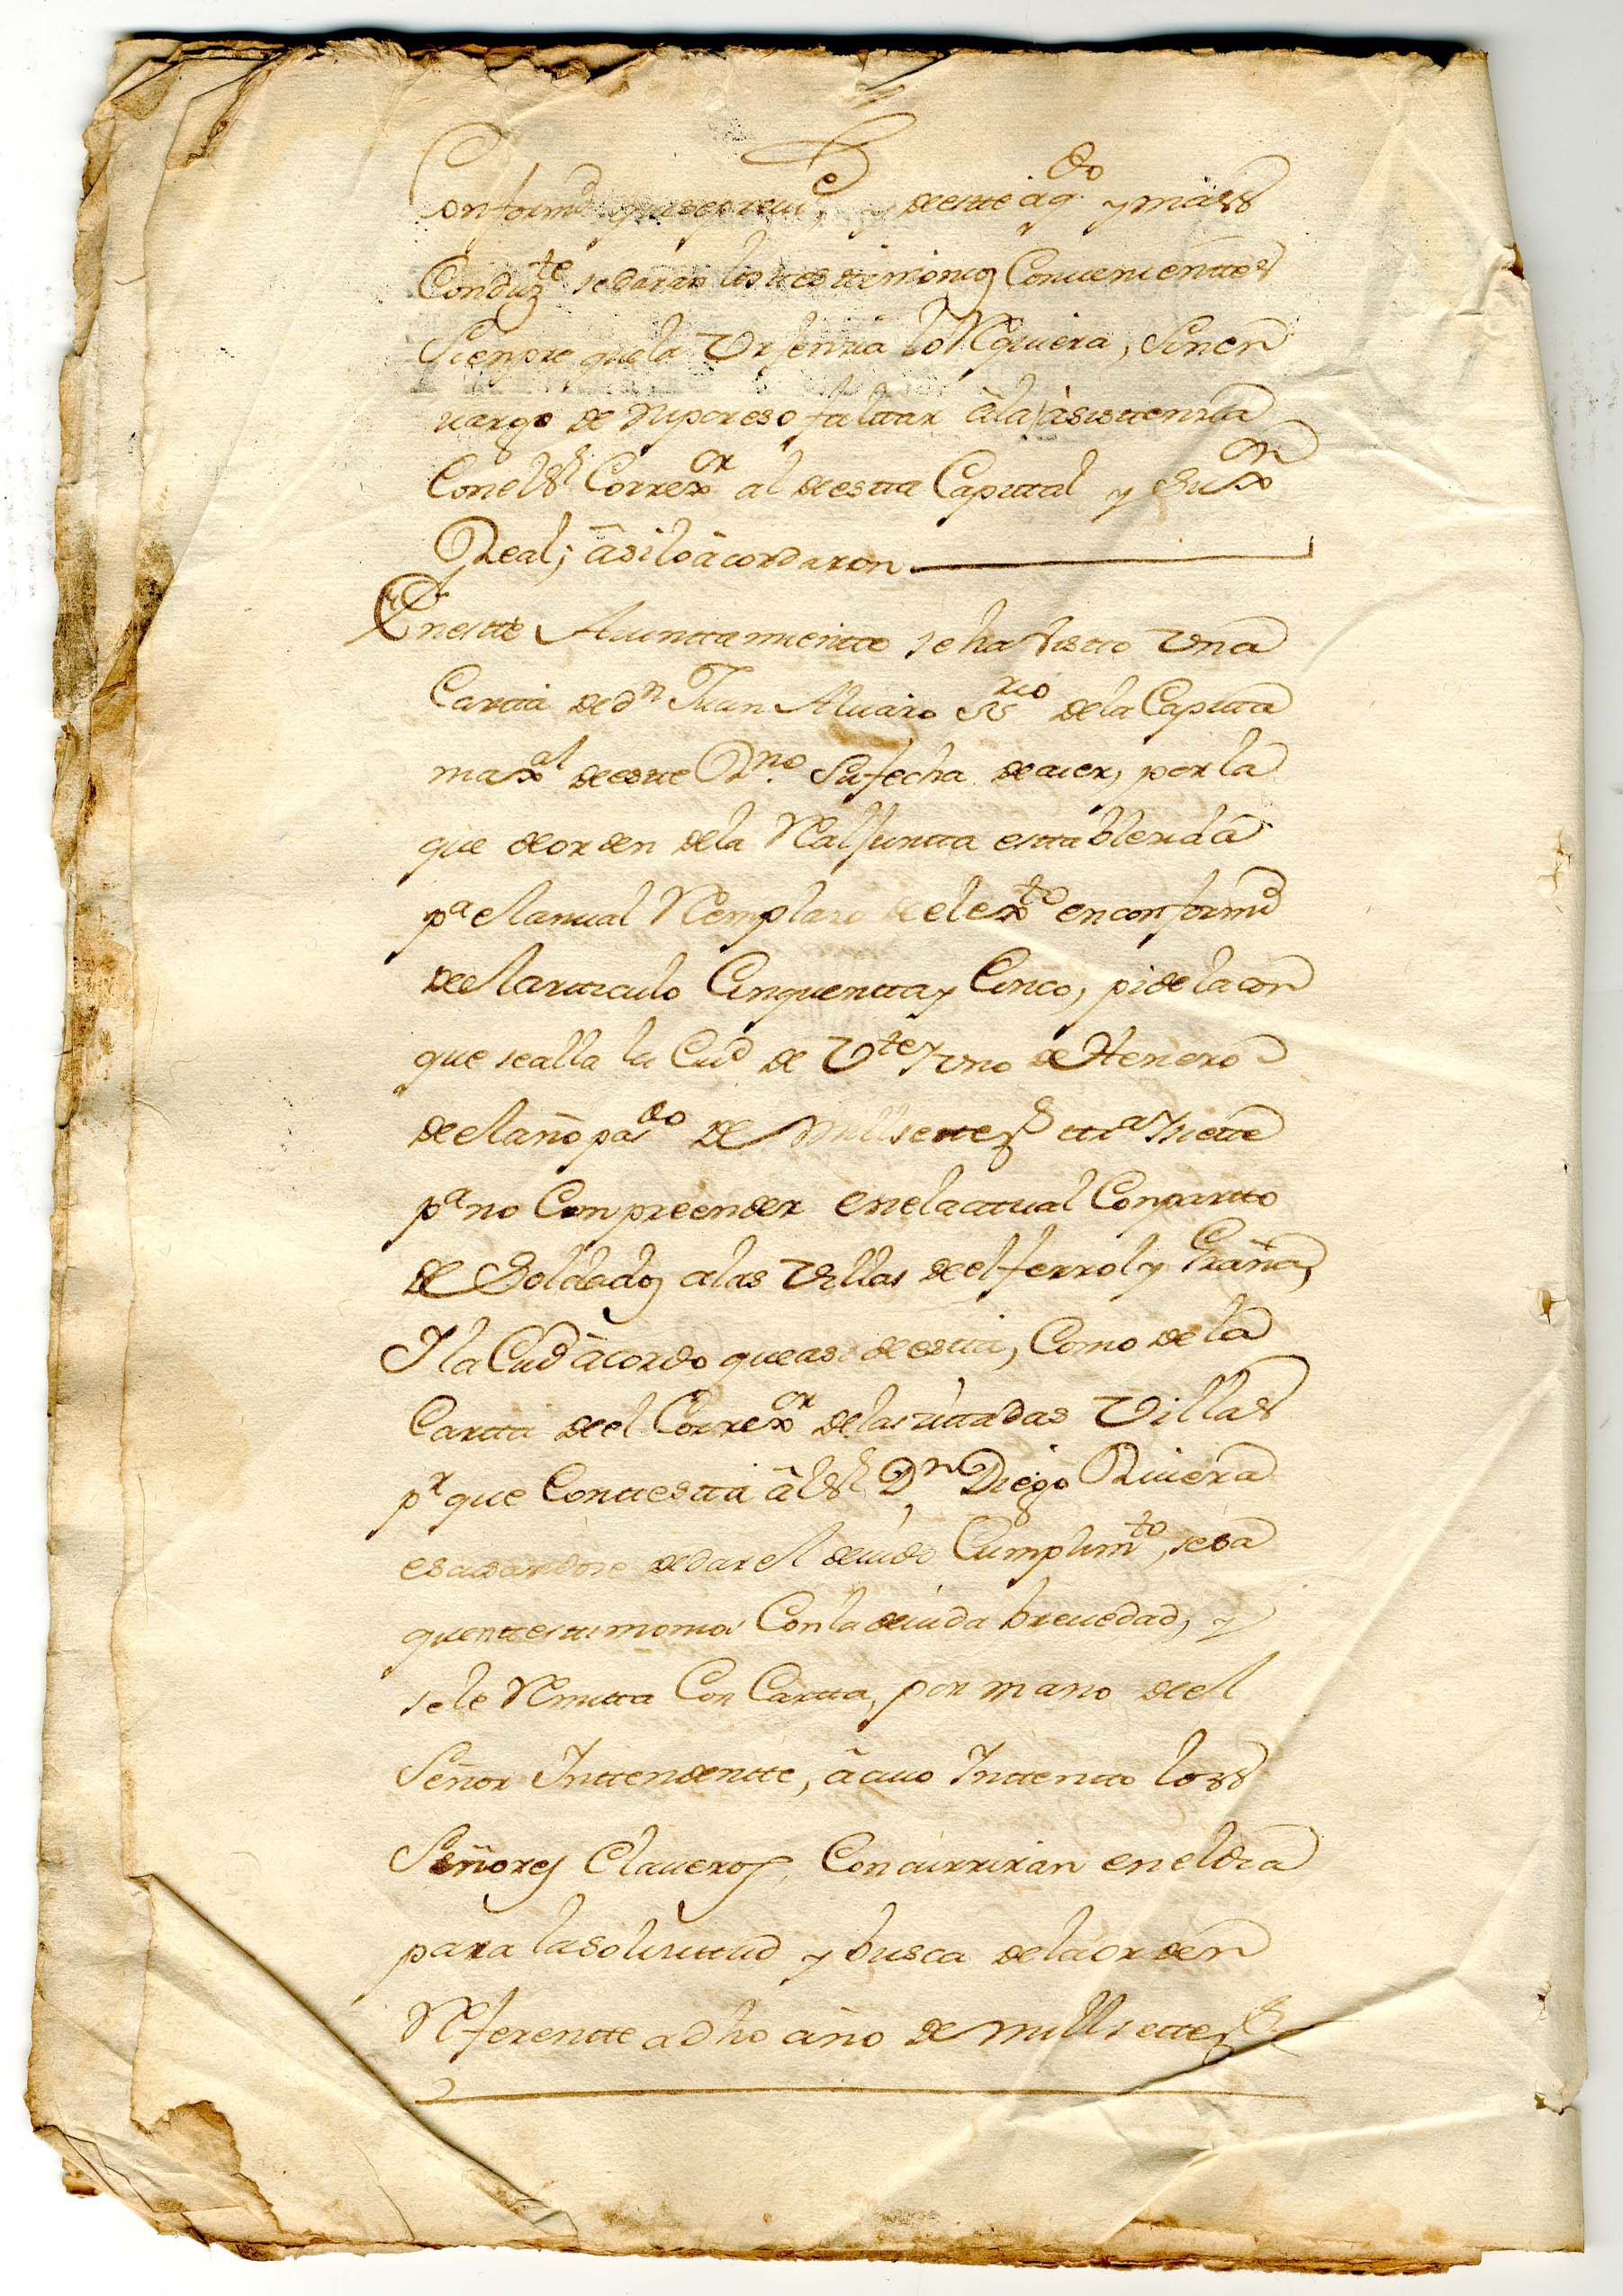 Conformd y deste aqdo y mass
Conduzte se daran los testimonios Conuenienttes
Sienpre que la Vrsenzia lo Requiera, sinen
uargo de nuporeso falttar â la âsisttenzia
Con el Sr Correxor al de estta Capittal y Su xon
Real; âsi lo âcordaron
En estte Aiunttamientto se ha Visto Vna
Cartta de dn Juan Aluaro Srio de la Capitta
ma xal de estte Rno. Su fecha de aier, por la
que de orden de la Rl Juntta esttablezida
pa el anual Remplazo de el exto en conformd
de el artticulo Cinquentta y Cinco, pide la con
que se alla la Ciud de Vte y Vno de Henero
de el año pasdo de mill settezs ttta y siette
pa no Compreender en el acttual Conpartto
de Soldados a las Villas de el ferrol y Graña,
Y la Ciud âcordo que asi de estta, Como de la
Cartta de el Correxor de las zittadas Villas
pr que Conttestta â el Sr Dn Diego Riuera
escusandose de dar el deuido Cumplimto, se sa
quen ttesttimonios Con la deuida breuedad, y
se le Remitta Con Cartta, por mano de el
Señor Inttendentte, â cuio Inttentto los SS
Señores Claueros, Concurriran en el dia
para la solizittud y busca de la orden
Referentte a dho año de mill settezs